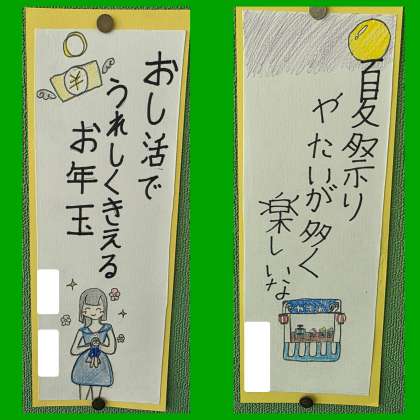 おし活で
うれしくきえる
お年玉
¥
夏祭り
やたいが多く
楽しいな